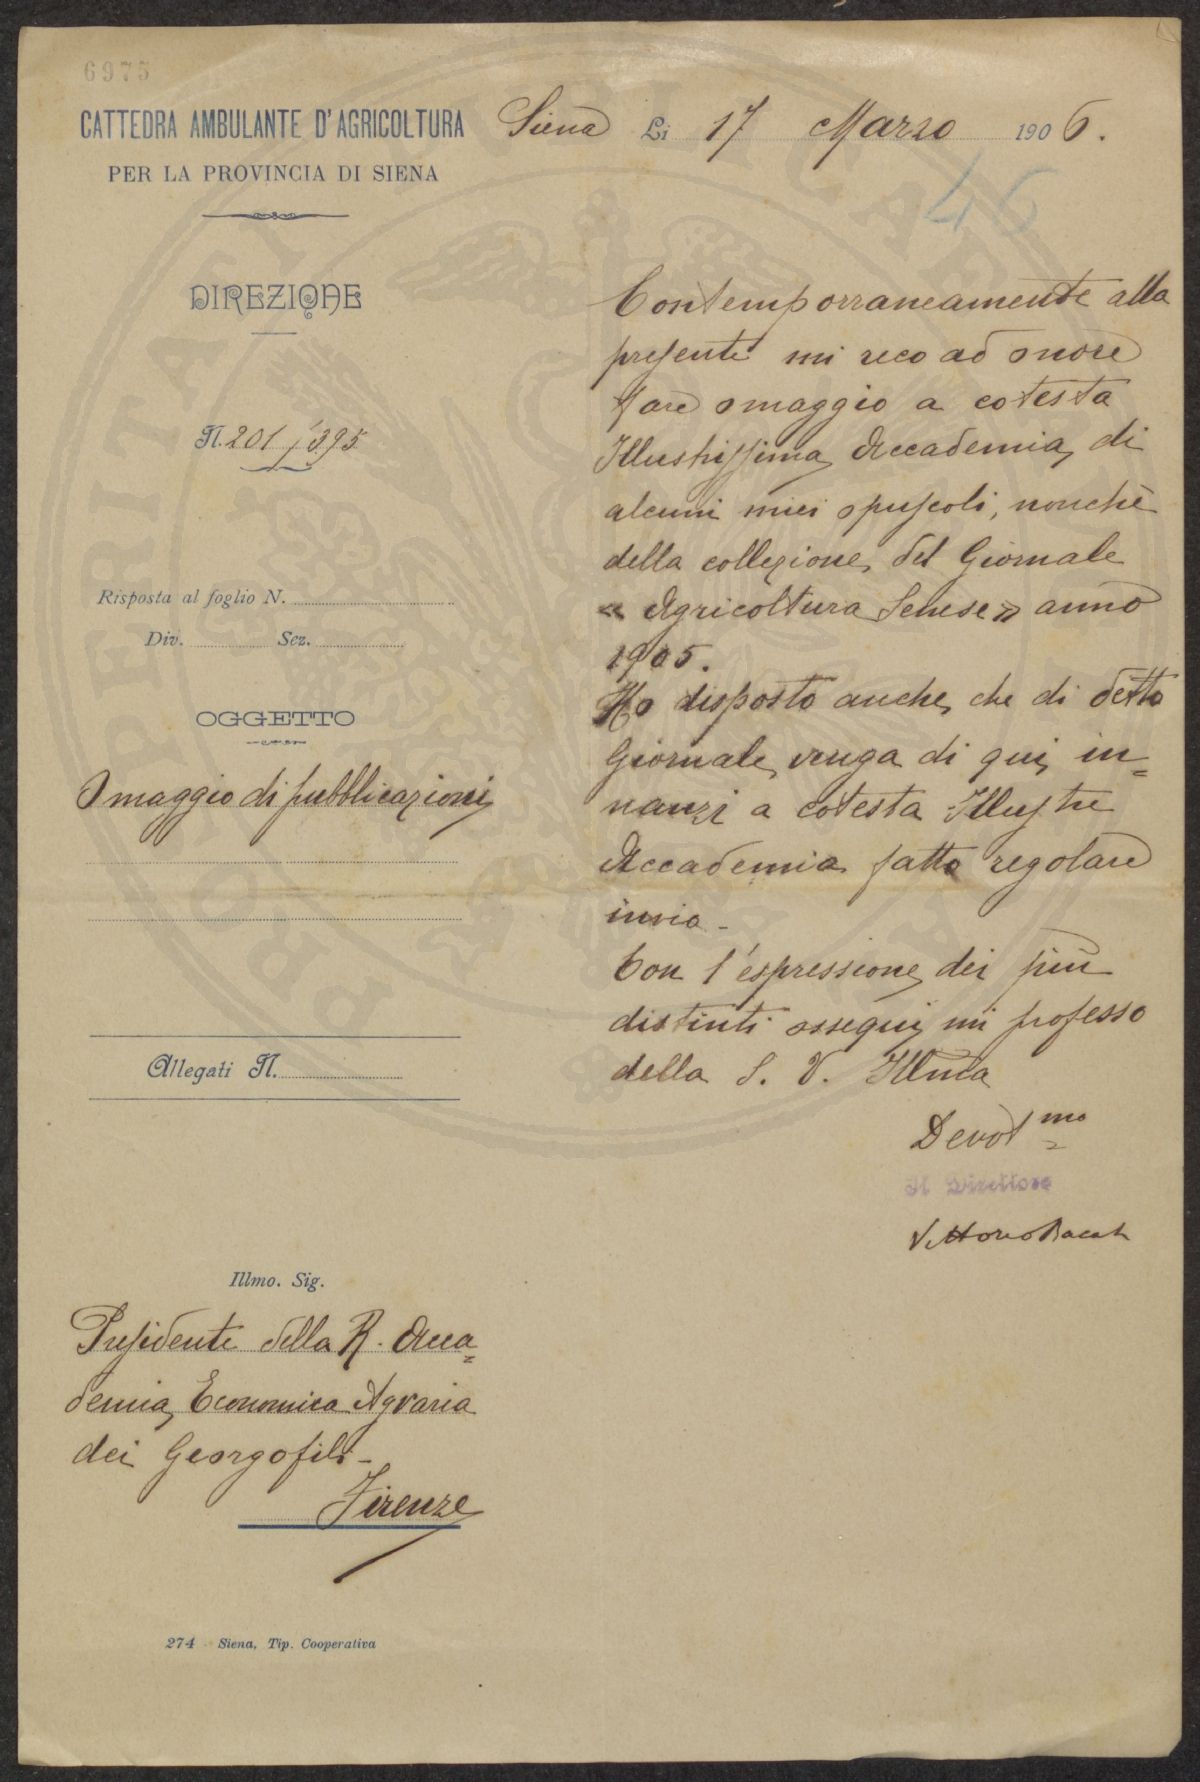 6975
CATTEDRA AMBULANTE D'AGRICOLTURA
PER LA PROVINCIA DI SIENA
Siena Li 17 Marzo 1906.
46
DIREZIONE
N. 201/395
Risposta al foglio N.
Div. Sez.
OGGETTO
Omaggio di pubblicazioni
Allegati N.
Contemporraneamente alla
presente mi reco ad onore
fare omaggio a cotesta
Illustrissima Accademia, di
alcuni miei opuscoli, nonchè
della collezione, del Giornale
« Agricoltura Senese » anno
1905.
Ho disposto anche, che di detto
Giornale, venga di qui, in=
nanzi a cotesta Illustre
Accademia fatto regolare
invio -
Con l'espressione, dei più
distinti ossequi, mi professo
della S. V. Illma
Devot mo
Il Direttore
Vittorio
Illmo. Sig.
Presidente della R. Acca=
demia, Economica Agraria
dei Georgofili -
Firenze
274 - Siena, Tip. Cooperativa